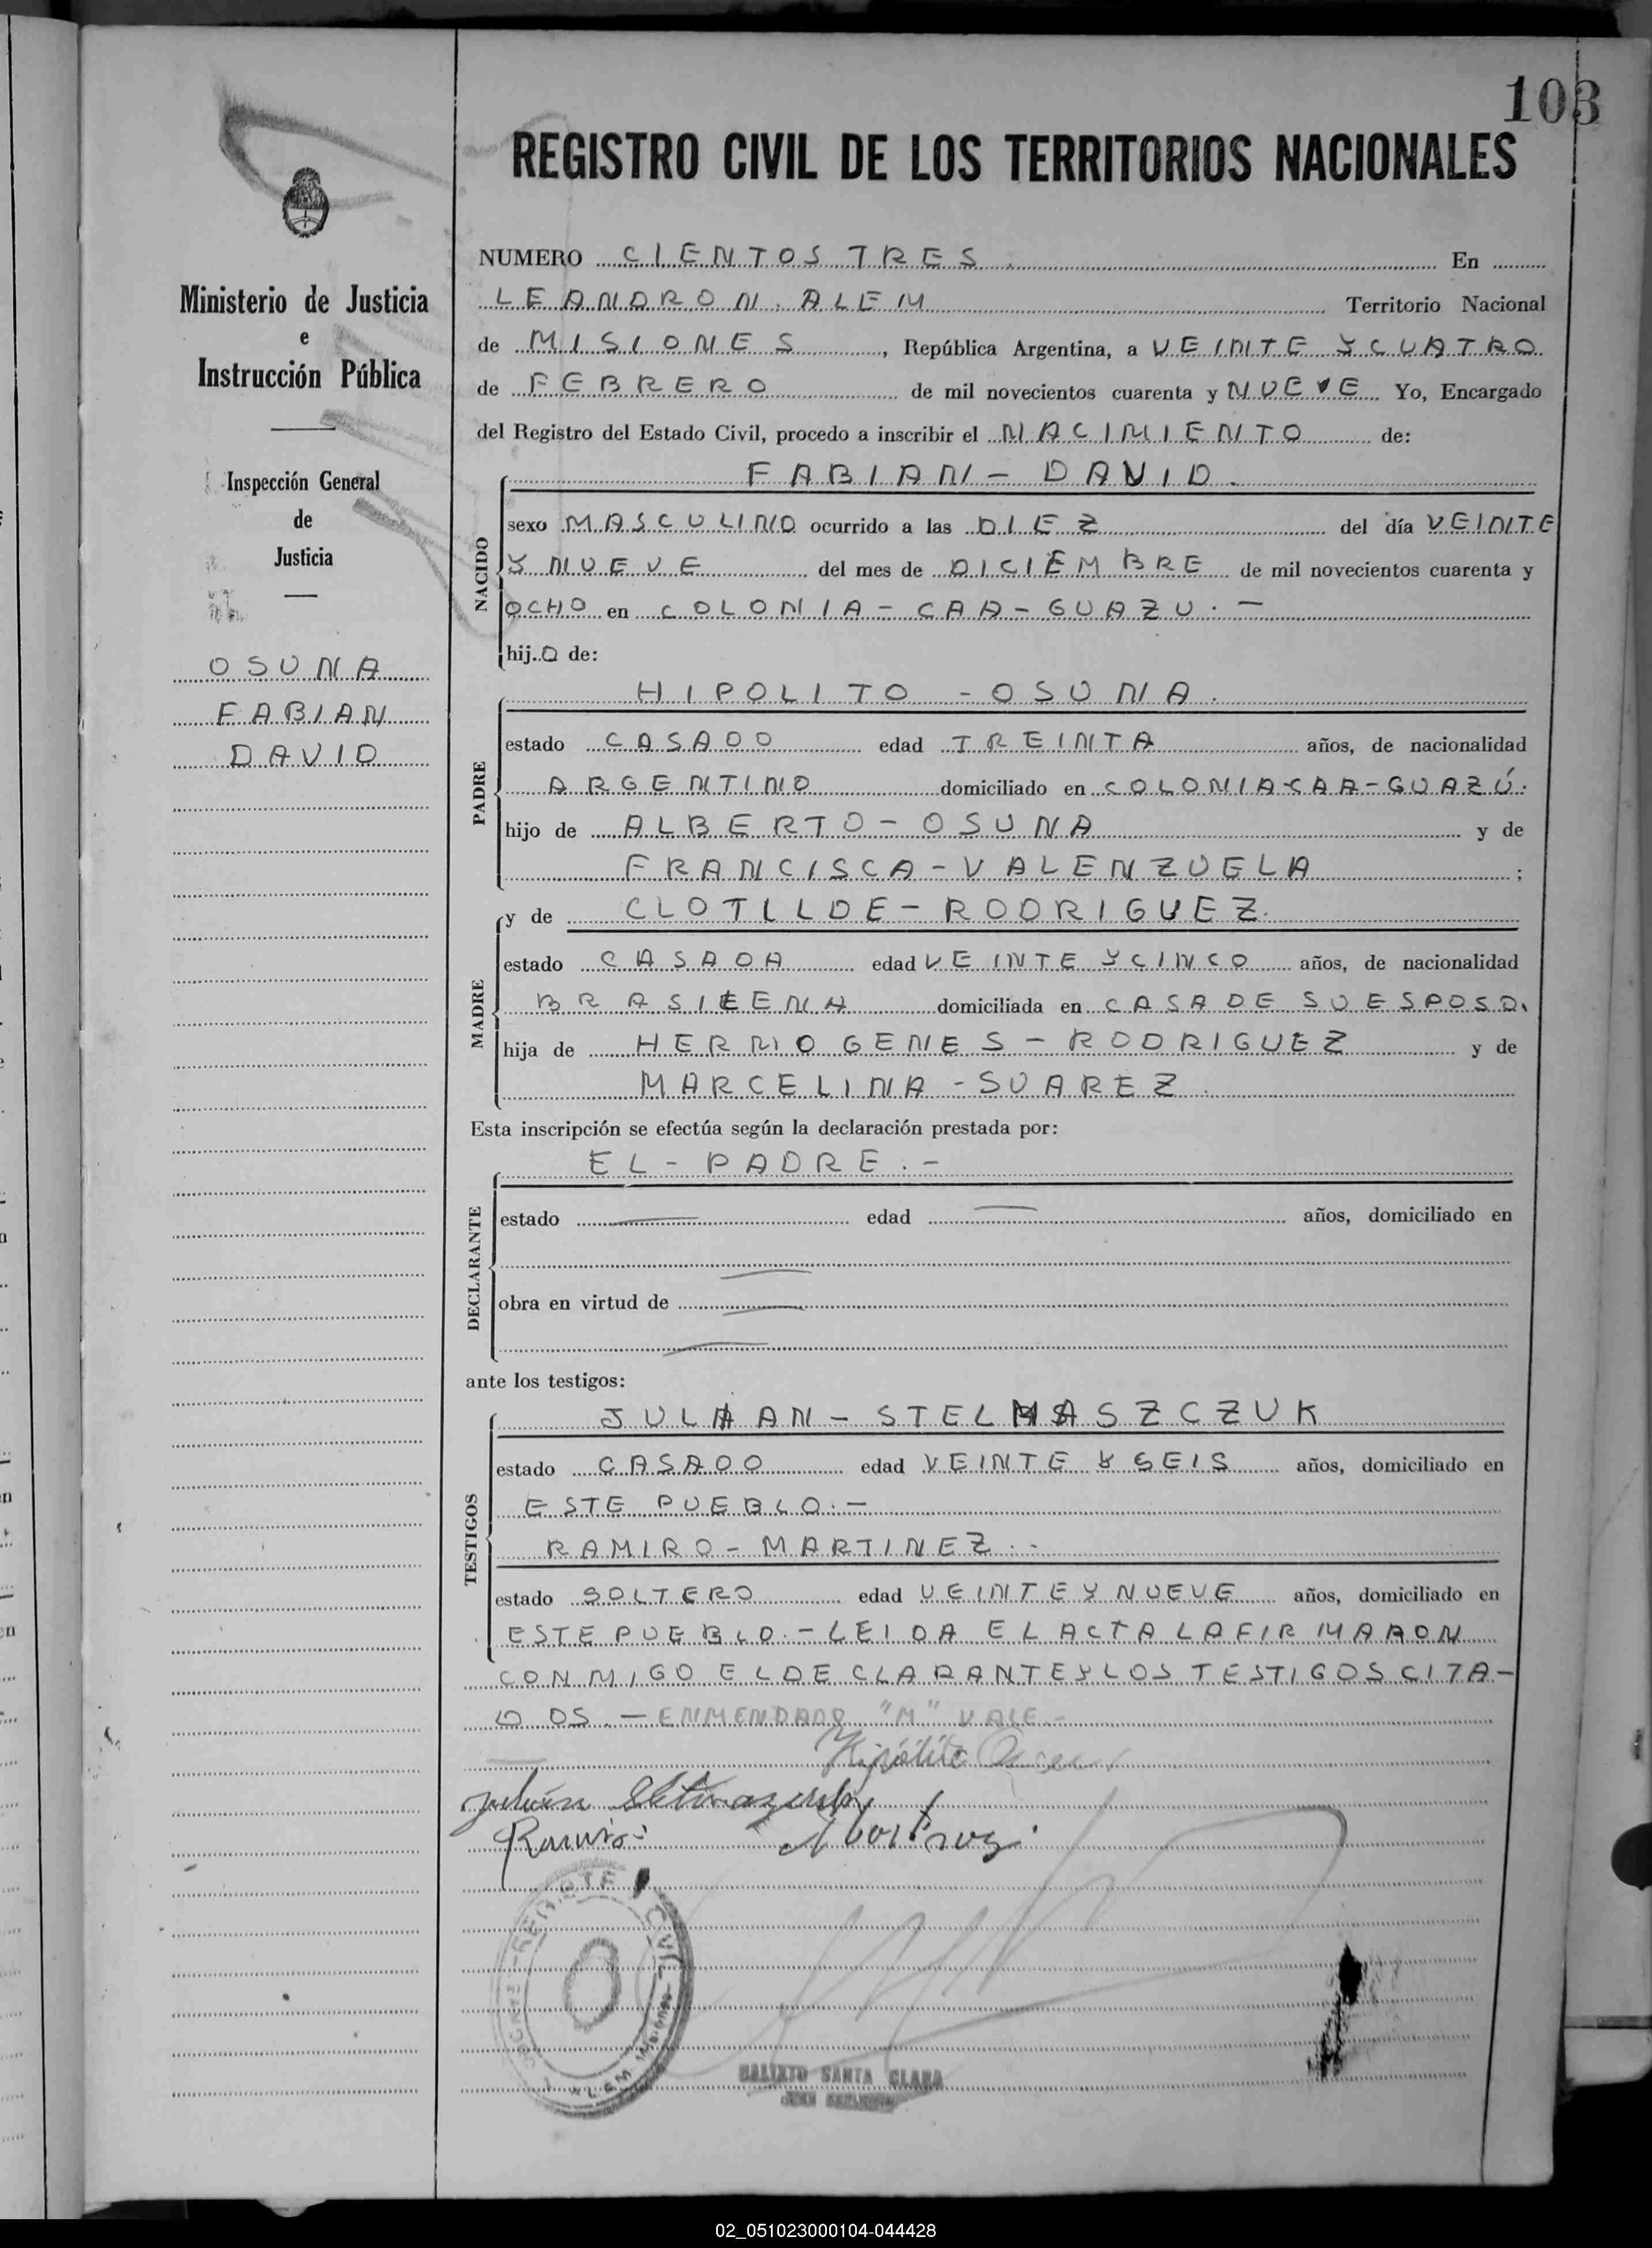 103
REGISTRO CIVIL DE LOS TERRITORIOS NACIONALES
Ministerio de Justicia
e
Instrucción Pública
Inspección General
de
Justicia
OSUNA
FABIAN
DAVID
NUMERO CIENTOS TRES. En
LEANDRO N. ALEM Territorio Nacional
de MISIONES, República Argentina, a VEINTE Y CUATRO
de FEBRERO de mil novecientos cuarenta y NUEVE Yo, Encargado
del Registro del Estado Civil, procedo a inscribir el NACIMIENTO de:
NACIDO
FABIAN - DAVID.
sexo MASCULINO ocurrido a las DIEZ del día VEINTE
Y NUEVE del mes de DICIEMBRE de mil novecientos cuarenta y
OCHO en COLONIA - CAA - GUAZU. -
hijo de:
PADRE
HIPOLITO - OSUNA.
estado CASADO edad TREINTA años, de nacionalidad
ARGENTINO domiciliado en COLONIA-CAA-GUAZÚ.
hijo de ALBERTO - OSUNA y de
FRANCISCA - VALENZUELA ;
MADRE
y de CLOTILDE - RODRIGUEZ.
estado CASADA edad VEINTE Y CINCO años, de nacionalidad
BRASILEENA domiciliada en CASA DE SU ESPOSO.
hija de HERMOGENES - RODRIGUEZ y de
MARCELINA - SUAREZ.
Esta inscripción se efectúa según la declaración prestada por:
DECLARANTE
EL - PADRE. -
estado edad años, domiciliado en
obra en virtud de
ante los testigos:
TESTIGOS
JULIAN - STELMASZCZUK
estado CASADO edad VEINTE Y SEIS años, domiciliado en
ESTE PUEBLO. -
RAMIRO - MARTINEZ. -
estado SOLTERO edad VEINTE Y NUEVE años, domiciliado en
ESTE PUEBLO. - LEIDA EL ACTA LA FIRMARON
CONMIGO EL DECLARANTE Y LOS TESTIGOS CITA-
DOS. - ENMENDADO "M" VALE. -
Hipólito Osuna
Ramiro Martinez
CIVIL
ALEM Misiones
CALIXTO SANTA CLARA
02_051023000104-044428